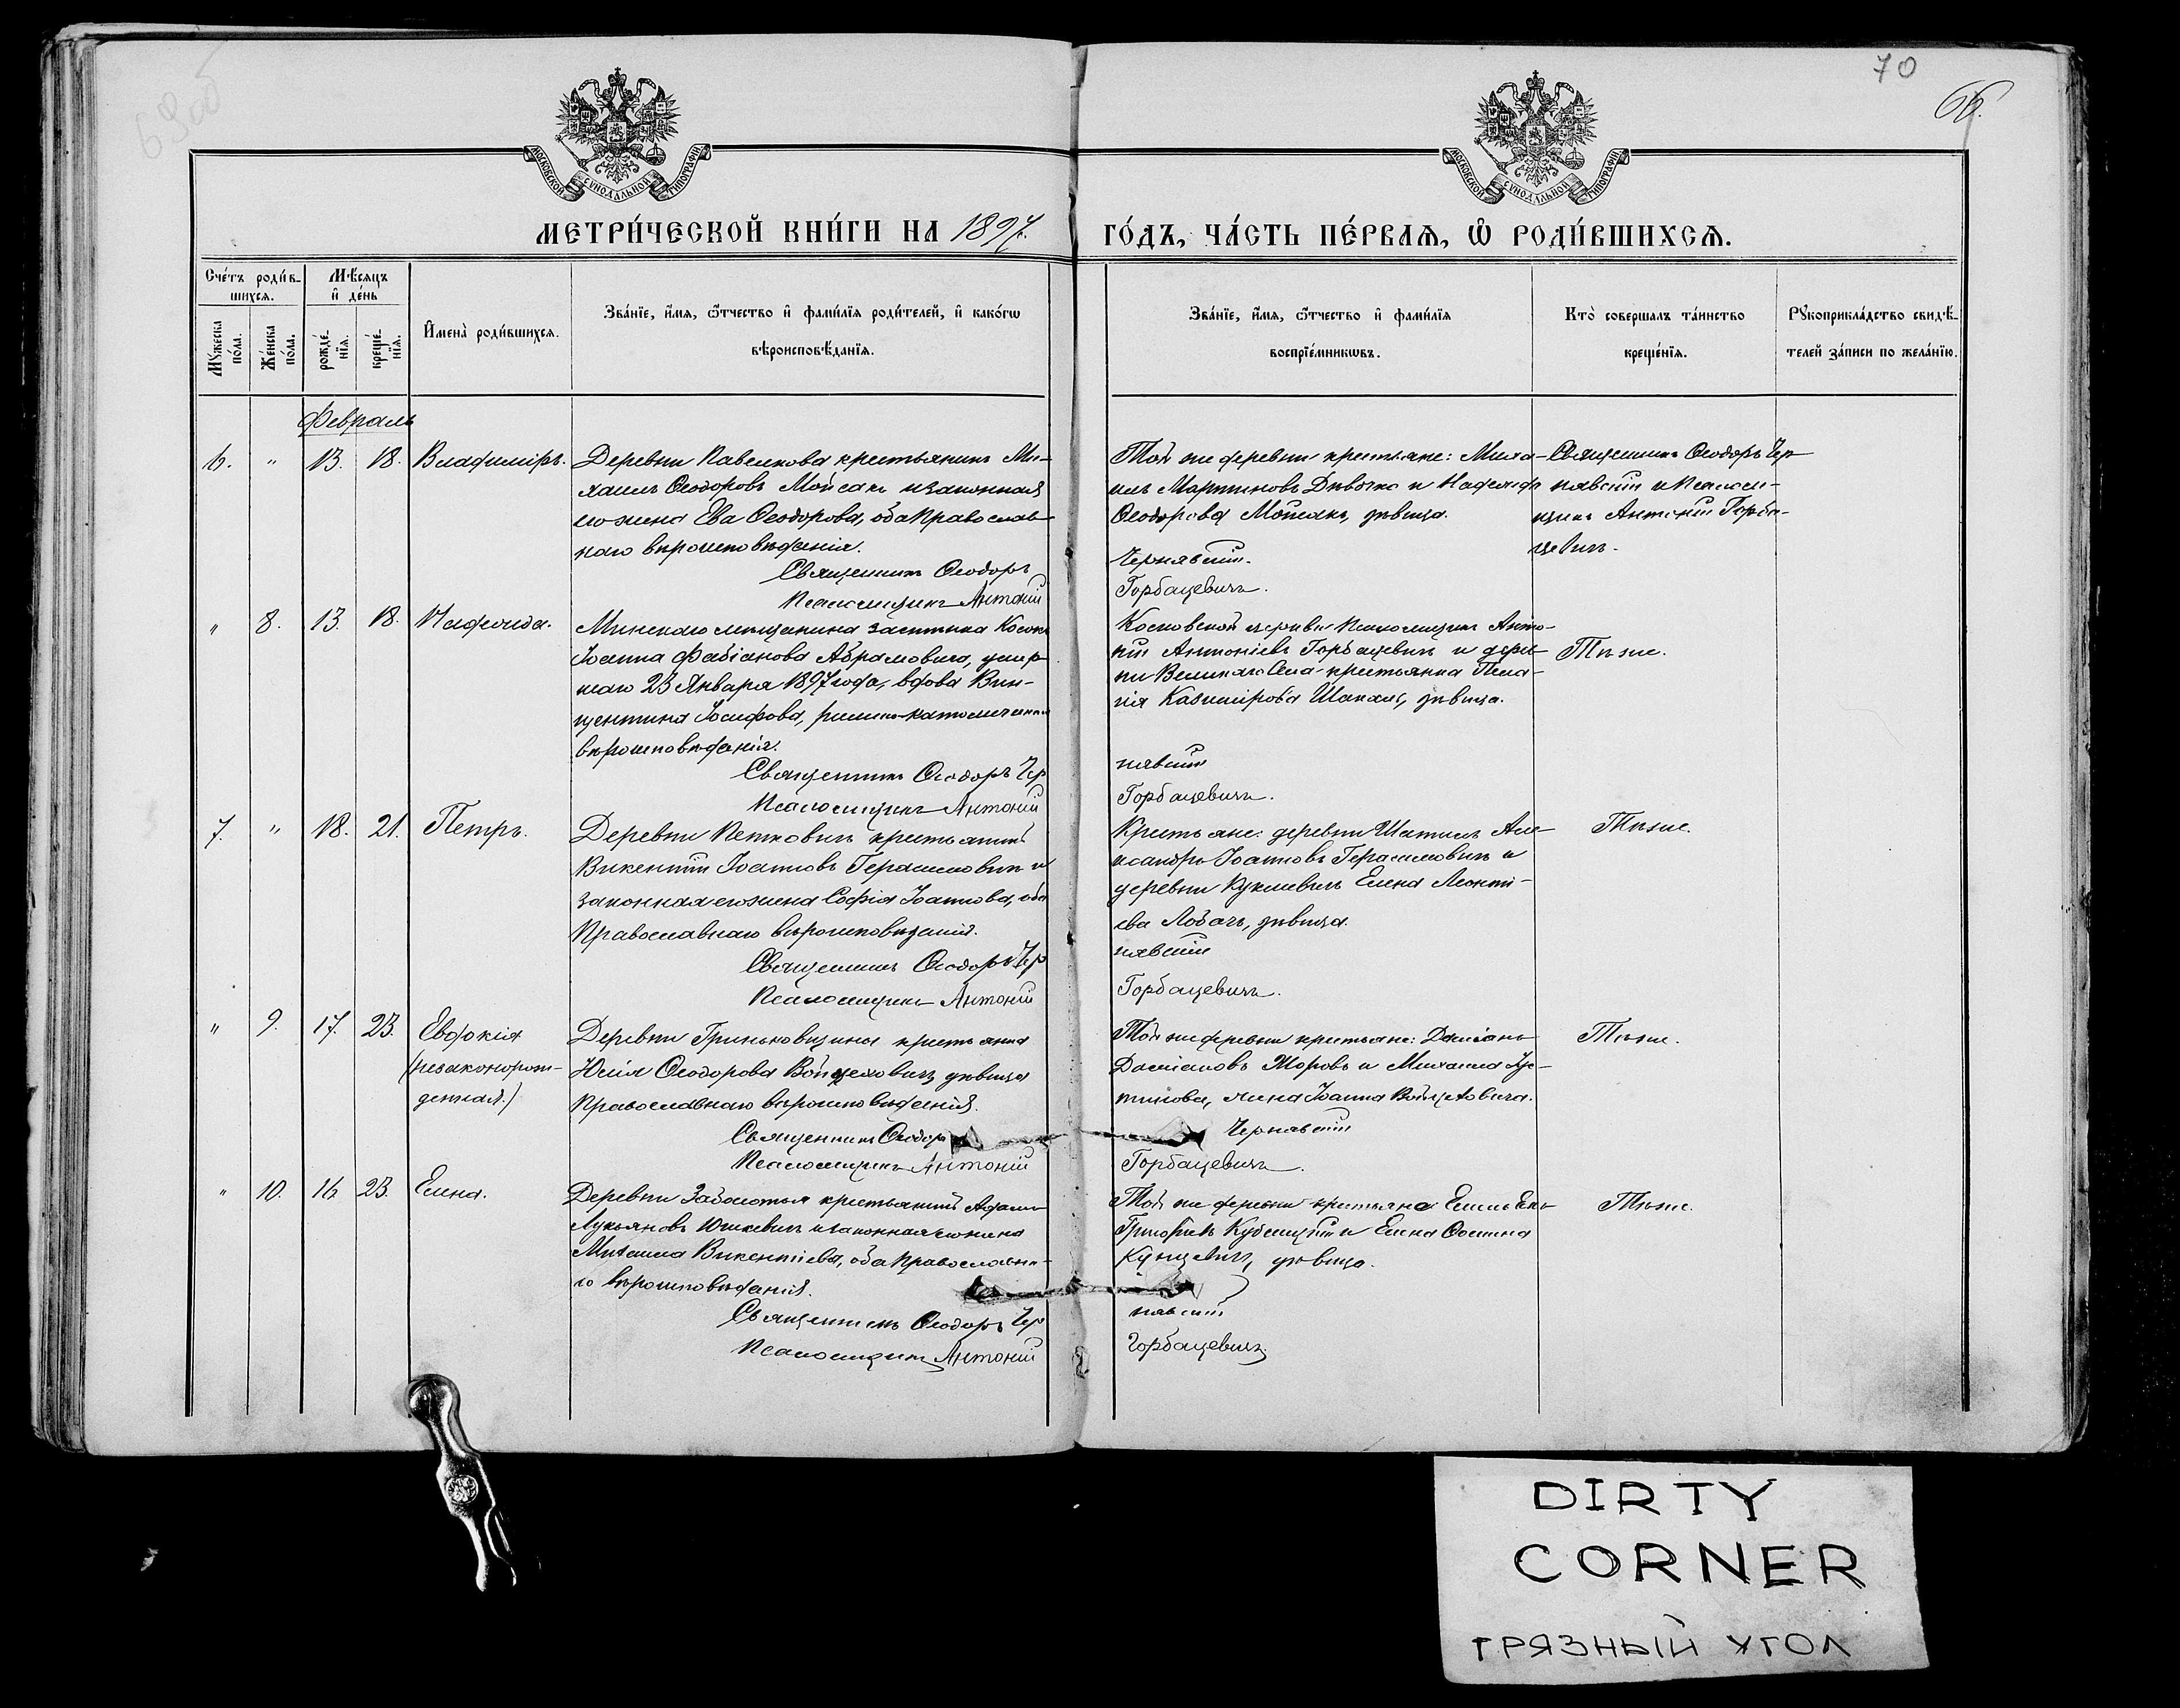 70
66.
МОСКОВСКОЙ СУНОДАЛЬНОЙ ТИПОГРАФІИ
МОСКОВСКОЙ СУНОДАЛЬНОЙ ТИПОГРАФІИ
МЕТРИ́ЧЕСКОЙ КНИ́ГИ НА 1897 г.
ГО́ДЪ, ЧА́СТЬ ПЕ́РВАЯ, Ѡ РОДИ́ВШИХСЯ.
Сче́тъ роди́вшихся.
Мꙋжеска по́ла.
Же́нска по́ла.
Мѣ́сяцъ и҆ де́нь
рожде́нїя.
креще́нїя.
И҆мена̀ роди́вшихся.
Зва́нїе, и҆́мя, ѻ҆́тчество и҆ фами́лїя роди́телей, и҆ како́гѡ
вѣроисповѣ́данїя.
Зва́нїе, и҆́мя, ѻ҆́тчество и҆ фами́лїя
воспрїе́мникѡвъ.
Кто̀ соверша́лъ та́инство
креще́нїя.
Рꙋкоприкла́дство свидѣ́-
телей за́писи по жела́нїю.
Февраль
6. " 13. 18. Владиміръ.
Деревни Павелкова крестьянинъ Ми-
хаилъ Ѳеодоровъ Мойсакъ и законная
его жена Ева Ѳеодорова, оба Православ-
наго вѣроисповѣданія.
Священникъ Ѳеодоръ
Псаломщикъ Антоній
Той же деревни крестьяне: Миха-
илъ Мартиновъ Дивочко и Надежда
Ѳеодорова Мойсакъ, дѣвица.
Чернявскій.
Горбацевичъ.
Священникъ Ѳеодоръ Чер-
нявскій и Псалом-
щикъ Антоній Горба-
цевичъ.
" 8. 13. 18. Надежда.
Минскаго мѣщанина застѣнка
Іоанна Фабіанова Абрамовича, умер-
шаго 23 Января 1897 года, вдова Вин-
центина Іосифова, римско-католическаго
вѣроисповѣданія.
Священникъ Ѳеодоръ Чер
Псаломщикъ Антоній
церкви Псаломщикъ Анто-
ній Антоніевъ Горбацевичъ и дерев-
ни Великаго Села крестьянка Пела-
гія Казимірова Шакаль, дѣвица.
нявскій
Горбацевичъ.
Тѣже.
7. " 18. 21. Петръ.
Деревни Петковичъ крестьянинъ
Викентій Іоанновъ Герасимовичъ и
законная его жена Софія Іоаннова, оба
Православнаго вѣроисповѣданія.
Священникъ Ѳеодоръ Чер
Псаломщикъ Антоній
Крестьяне: деревни Шатилъ Але-
ксандръ Іоанновъ Герасимовичъ и
деревни Куклевичъ Елена Леонті-
ева Лобачъ, дѣвица.
нявскій
Горбацевичъ.
Тѣже.
" 9. 17. 23. Евдокія
(незаконорож-
денная.)
Деревни Гриньковщины крестьянка
Юлія Ѳеодорова Войцеховичъ, дѣвица
Православнаго вѣроисповѣданія.
Священникъ Ѳеодоръ
Псаломщикъ Антоній
Той же деревни крестьяне: Даміанъ
Даміановъ Жоровъ и Михалина Ус-
тинова, жена Іоанна Войцеховича.
Чернявскій
Горбацевичъ.
Тѣже.
" 10. 16 23. Елена.
Деревни Заболотья крестьянинъ Адамъ
Лукьяновъ Юшкевичъ и законная его жена
Михалина Викентіева, оба Православна-
го вѣроисповѣданія.
Священникъ Ѳеодоръ Чер
Псаломщикъ Антоній
Той же деревни крестьяне
Елена Ѳомина
Кунцевичъ, дѣвица.
нявскій
Горбацевичъ.
Тѣже.
DIRTY
CORNER
ГРЯЗНЫЙ УГОЛ